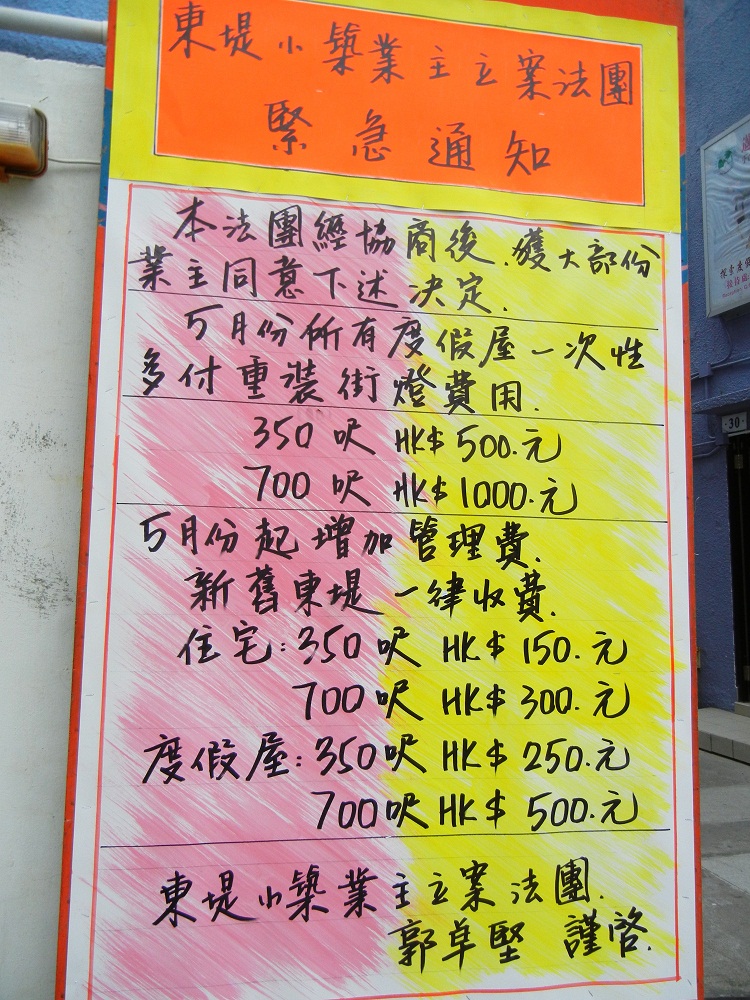 東堤小築業主立案法團
緊急通知
本法團經協商後.獲大部份
業主同意下述決定.
5月份所有度假屋一次性
多付重裝街燈費用.
350呎 HK$500.元
700呎 HK$1000.元
5月份起增加管理費.
新舊東堤一律收費.
住宅:350呎 HK$150.元
700呎 HK$300.元
度假屋:350呎 HK$250.元
700呎 HK$500.元
東堤小築業主立案法團.
郭卓堅 謹啓.
30